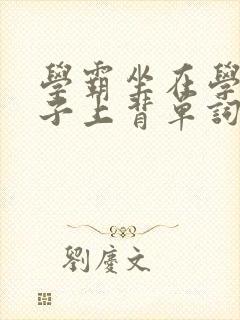 學霸坐在學
子上背單詞
劉慶文